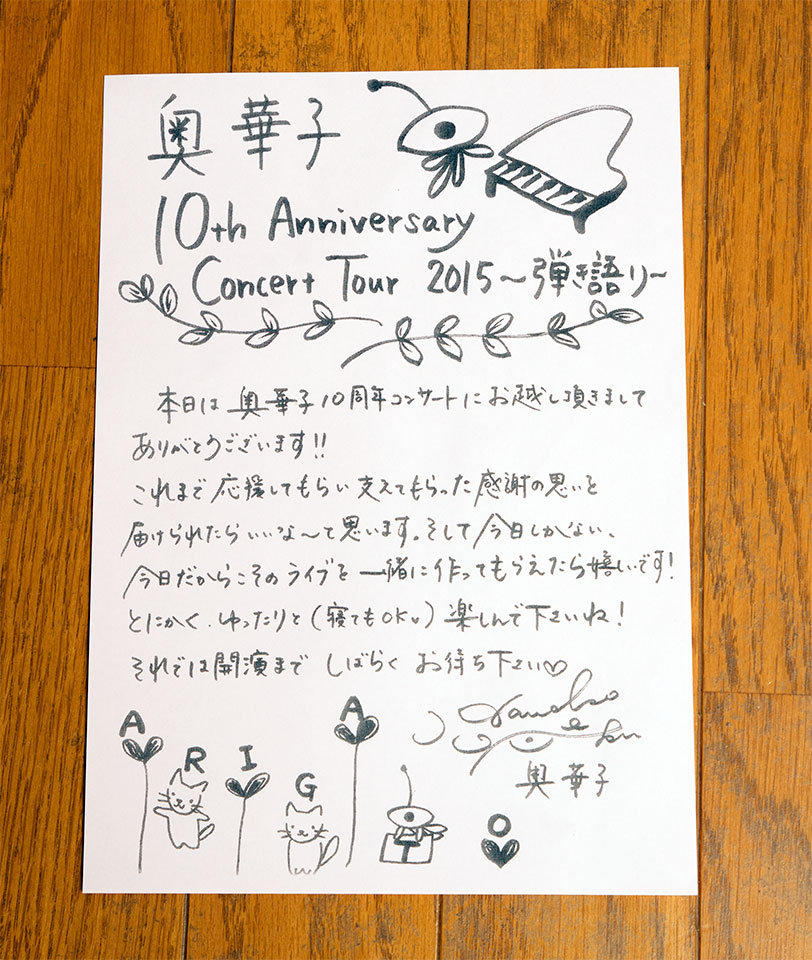 奥 華子
10th Anniversary
Concert Tour 2015〜弾き語り〜
本日は 奥華子10周年コンサートにお越し頂きまして
ありがとうございます!!
これまで応援してもらい支えてもらった感謝の思いを
届けられたらいいな〜て思います。そして今日しかない、
今日だからこそのライブを一緒に作ってもらえたら嬉しいです!
とにかく、ゆったりと(寝てもOK♥)楽しんで下さいね!
それでは開演まで しばらく お待ち下さい♡
奥 華子
A R I G A
O